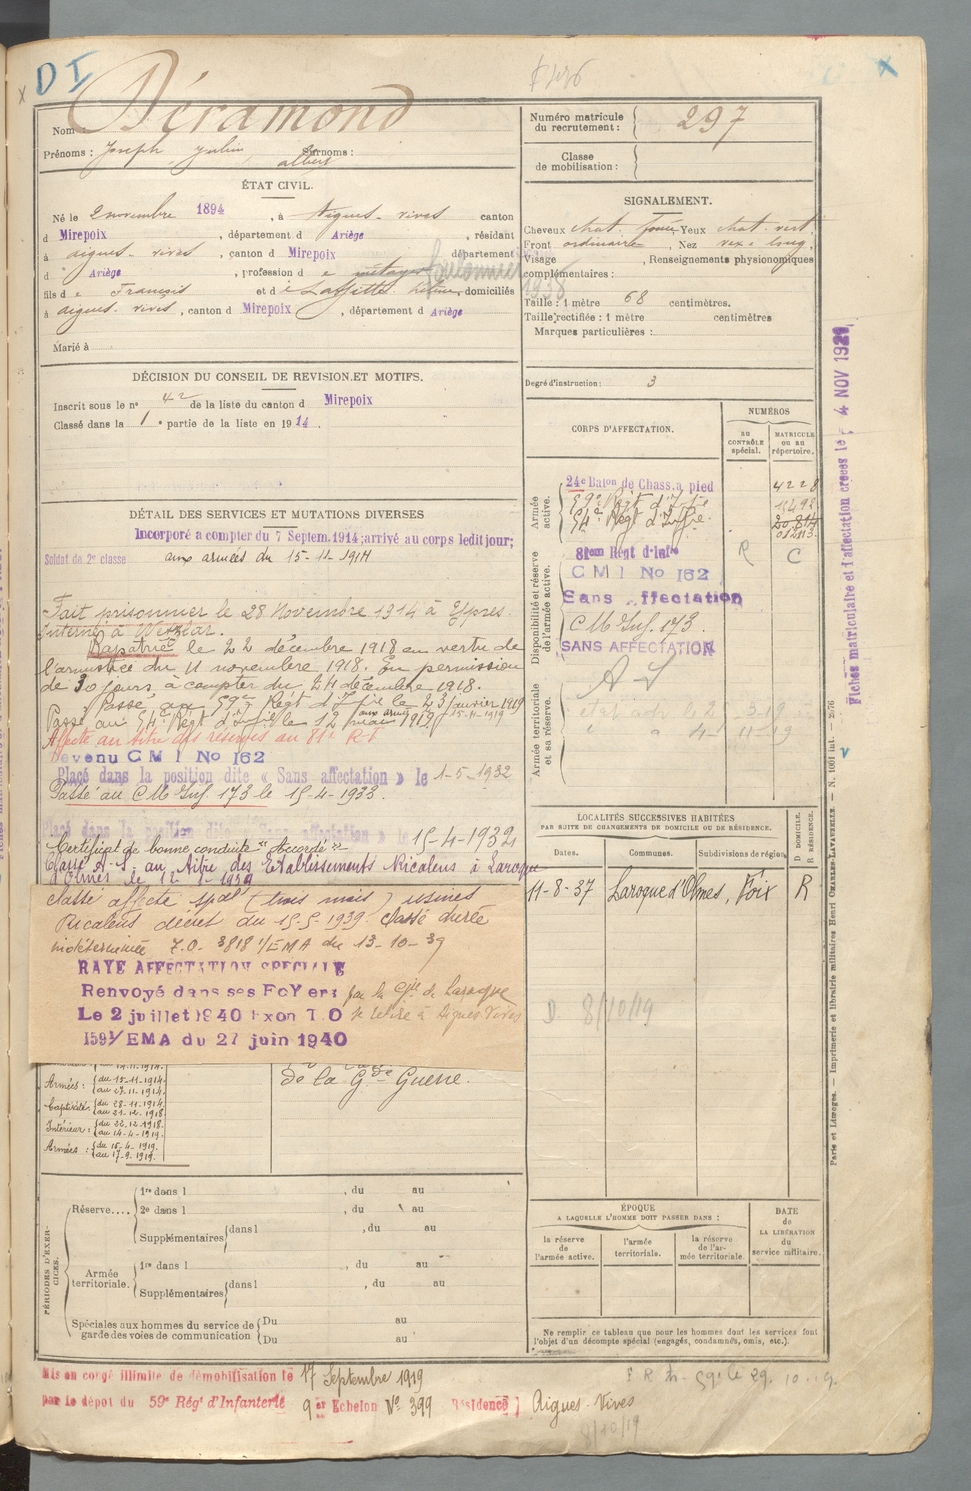 D I
Nom : Déramond
Prénoms : Joseph Julien albert Surnoms :
ÉTAT CIVIL.
Né le 2 novembre 1894, à Aigues-vives canton
d Mirepoix, département d Ariège, résidant
à aigues-vives, canton d Mirepoix département
d Ariège, profession d e métayer foulonnier 1938
fils de François et de Laffitte domiciliés
à aigues-vives, canton d Mirepoix, département d Ariège
Marié à
DÉCISION DU CONSEIL DE REVISION ET MOTIFS.
Inscrit sous le n° 42 de la liste du canton d Mirepoix
Classé dans la 1e partie de la liste en 1914.
DÉTAIL DES SERVICES ET MUTATIONS DIVERSES
Incorporé a compter du 7 Septem. 1914; arrivé au corps ledit jour;
Soldat de 2e classe aux armées du 15-11-1914
Fait prisonnier le 28 Novembre 1914 à Ypres.
Interné à Wetzlar.
Rapatrié le 22 décembre 1918 en vertu de
l'armistice du 11 novembre 1918. En permission
de 30 jours, à compter du 24 décembre 1918.
Passé au 59e Régt d'Ifrie le 23 janvier 1919
Passé au 54e Régt d'Ifrie le 12 mai 1919
Affecté au titre des réserves au 81e R I
Devenu C M I No 162
Placé dans la position dite « Sans affectation » le 1-5-1932
Passé au C M Inf. 173 le 15-4-1933.
Placé dans la position dite "Sans affectation" le 15-4-1932
Certificat de bonne conduite "Accordé"
Classé A-S au titre des Etablissements Ricalens à Laroque
d'Olmes le 12-1-1939
Classé affecté spal (trois mois) usines
Ricalens décret du 15-5-1939 Classé durée
indéterminée T.O. 3818 1/EMA du 13-10-39
RAYE AFFECTATION SPECIALE
Renvoyé dans ses FoYers par la Cie de Laroque
Le 2 juillet 1940 Exon T.O se retire à Aigues-Vives
1591/EMA du 27 juin 1940
de la Gde Guerre.
Armées : du 15-11-1914. au 27-11-1914.
Captivité : du 28-11-1914. au 21-12-1918.
Intérieur : du 22-12-1918. au 14-4-1919.
Armées : du 15-4-1919. au 17-9-1919.
PÉRIODES D'EXERCICES.
Réserve.... 1re dans l , du au
2e dans l , du au
Supplémentaires dans l , du au
Armée territoriale. 1re dans l , du au
Supplémentaires dans l , du au
Spéciales aux hommes du service de garde des voies de communication Du au
Du au
Mis en congé illimité de démobilisation le 17 Septembre 1919
par le dépôt du 59e Régt d'Infanterie 9er Echelon No 399 Résidence] Aigues-Vives
8/10/19
Numéro matricule du recrutement : 297
Classe de mobilisation :
SIGNALEMENT.
Cheveux chat. foncé Yeux chat. vert
Front ordinaire, Nez long,
Visage , Renseignements physionomiques
complémentaires :
Taille : 1 mètre 68 centimètres.
Taille rectifiée : 1 mètre centimètres
Marques particulières :
Degré d'instruction : 3
CORPS D'AFFECTATION.
NUMÉROS
AU CONTRÔLE spécial.
MATRICULE OU AU répertoire.
Armée active.
24e Balon de Chass. à pied 4228
59e Régt d'Ifie
54e Régt d'Iffie.
Disponibilité et réserve de l'armée active.
81em Régt d'Infie R C
C M I No 162
Sans affectation
C M Inf. 173.
SANS AFFECTATION
Armée territoriale et sa réserve.
A S
LOCALITÉS SUCCESSIVES HABITÉES
PAR SUITE DE CHANGEMENTS DE DOMICILE OU DE RÉSIDENCE.
Dates. Communes. Subdivisions de région. D DOMICILE. R RÉSIDENCE.
11-8-37 Laroque d'Olmes, Foix R
D 8/10/19
ÉPOQUE
A LAQUELLE L'HOMME DOIT PASSER DANS :
la réserve de l'armée active.
l'armée territoriale.
la réserve de l'armée territoriale.
DATE de LA LIBÉRATION du service militaire.
Ne remplir ce tableau que pour les hommes dont les services font
l'objet d'un décompte spécial (engagés, condamnés, omis, etc.).
Fiches matriculaire et d'affectation créées le 4 NOV 1921
Paris et Limoges. — Imprimerie et librairie militaires Henri CHARLES-LAVAUZELLE. — N. 1001 int. — 2/76